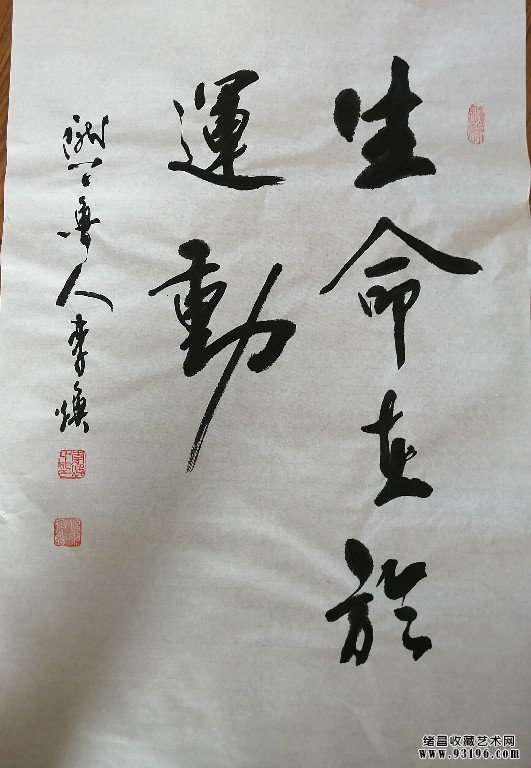 生命在於
運動
人李煥
绪昌收藏艺术网
www.93196.com